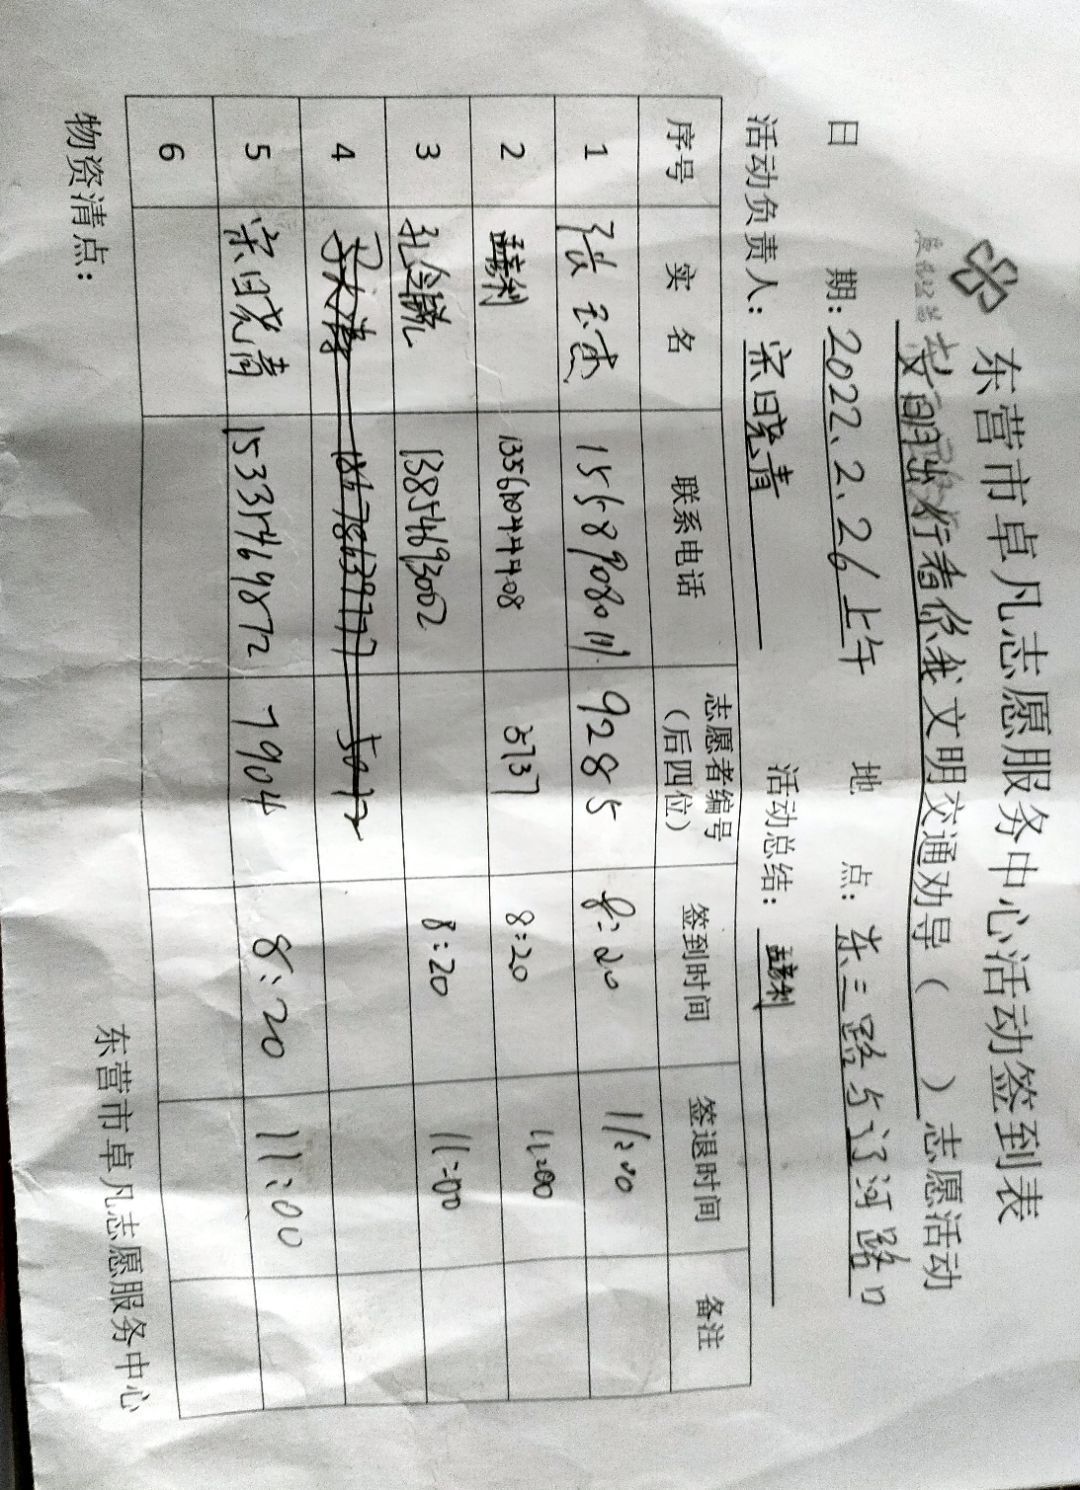 东营市卓凡志愿服务中心活动签到表
文明出行看你我文明交通劝导（ ）志愿活动
日 期：2022.2.26上午 地 点：东三路与辽河路口
活动负责人：宗晓青 活动总结：
序号 实 名 联系电话 志愿者编号（后四位） 签到时间 签退时间 备注
1 张 15689080111 9285 8:20 11:00
2 3737 8:20 11:00
3 孔令锐 13854693002 8:20 11:00
4
5 宗晓青 15337469872 7904 8:20 11:00
6
物资清点：
东营市卓凡志愿服务中心